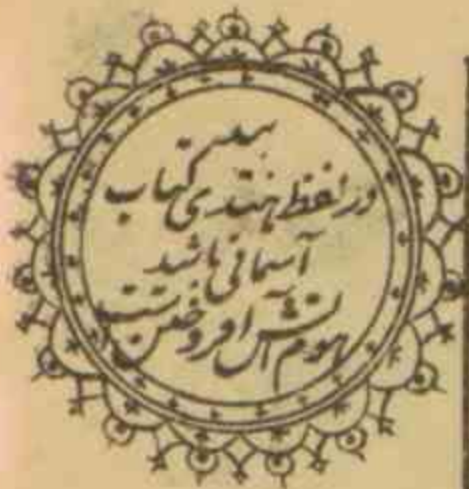 بید
در لفظ هندی کتاب
آسمانی باشد
هوم آتش افروختن است